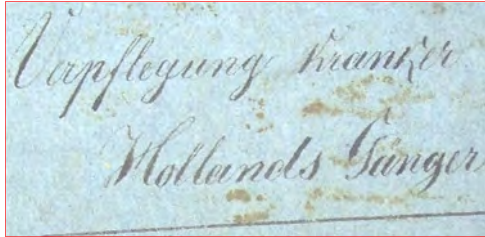 Verpflegung Kranker
Hollands Gänger